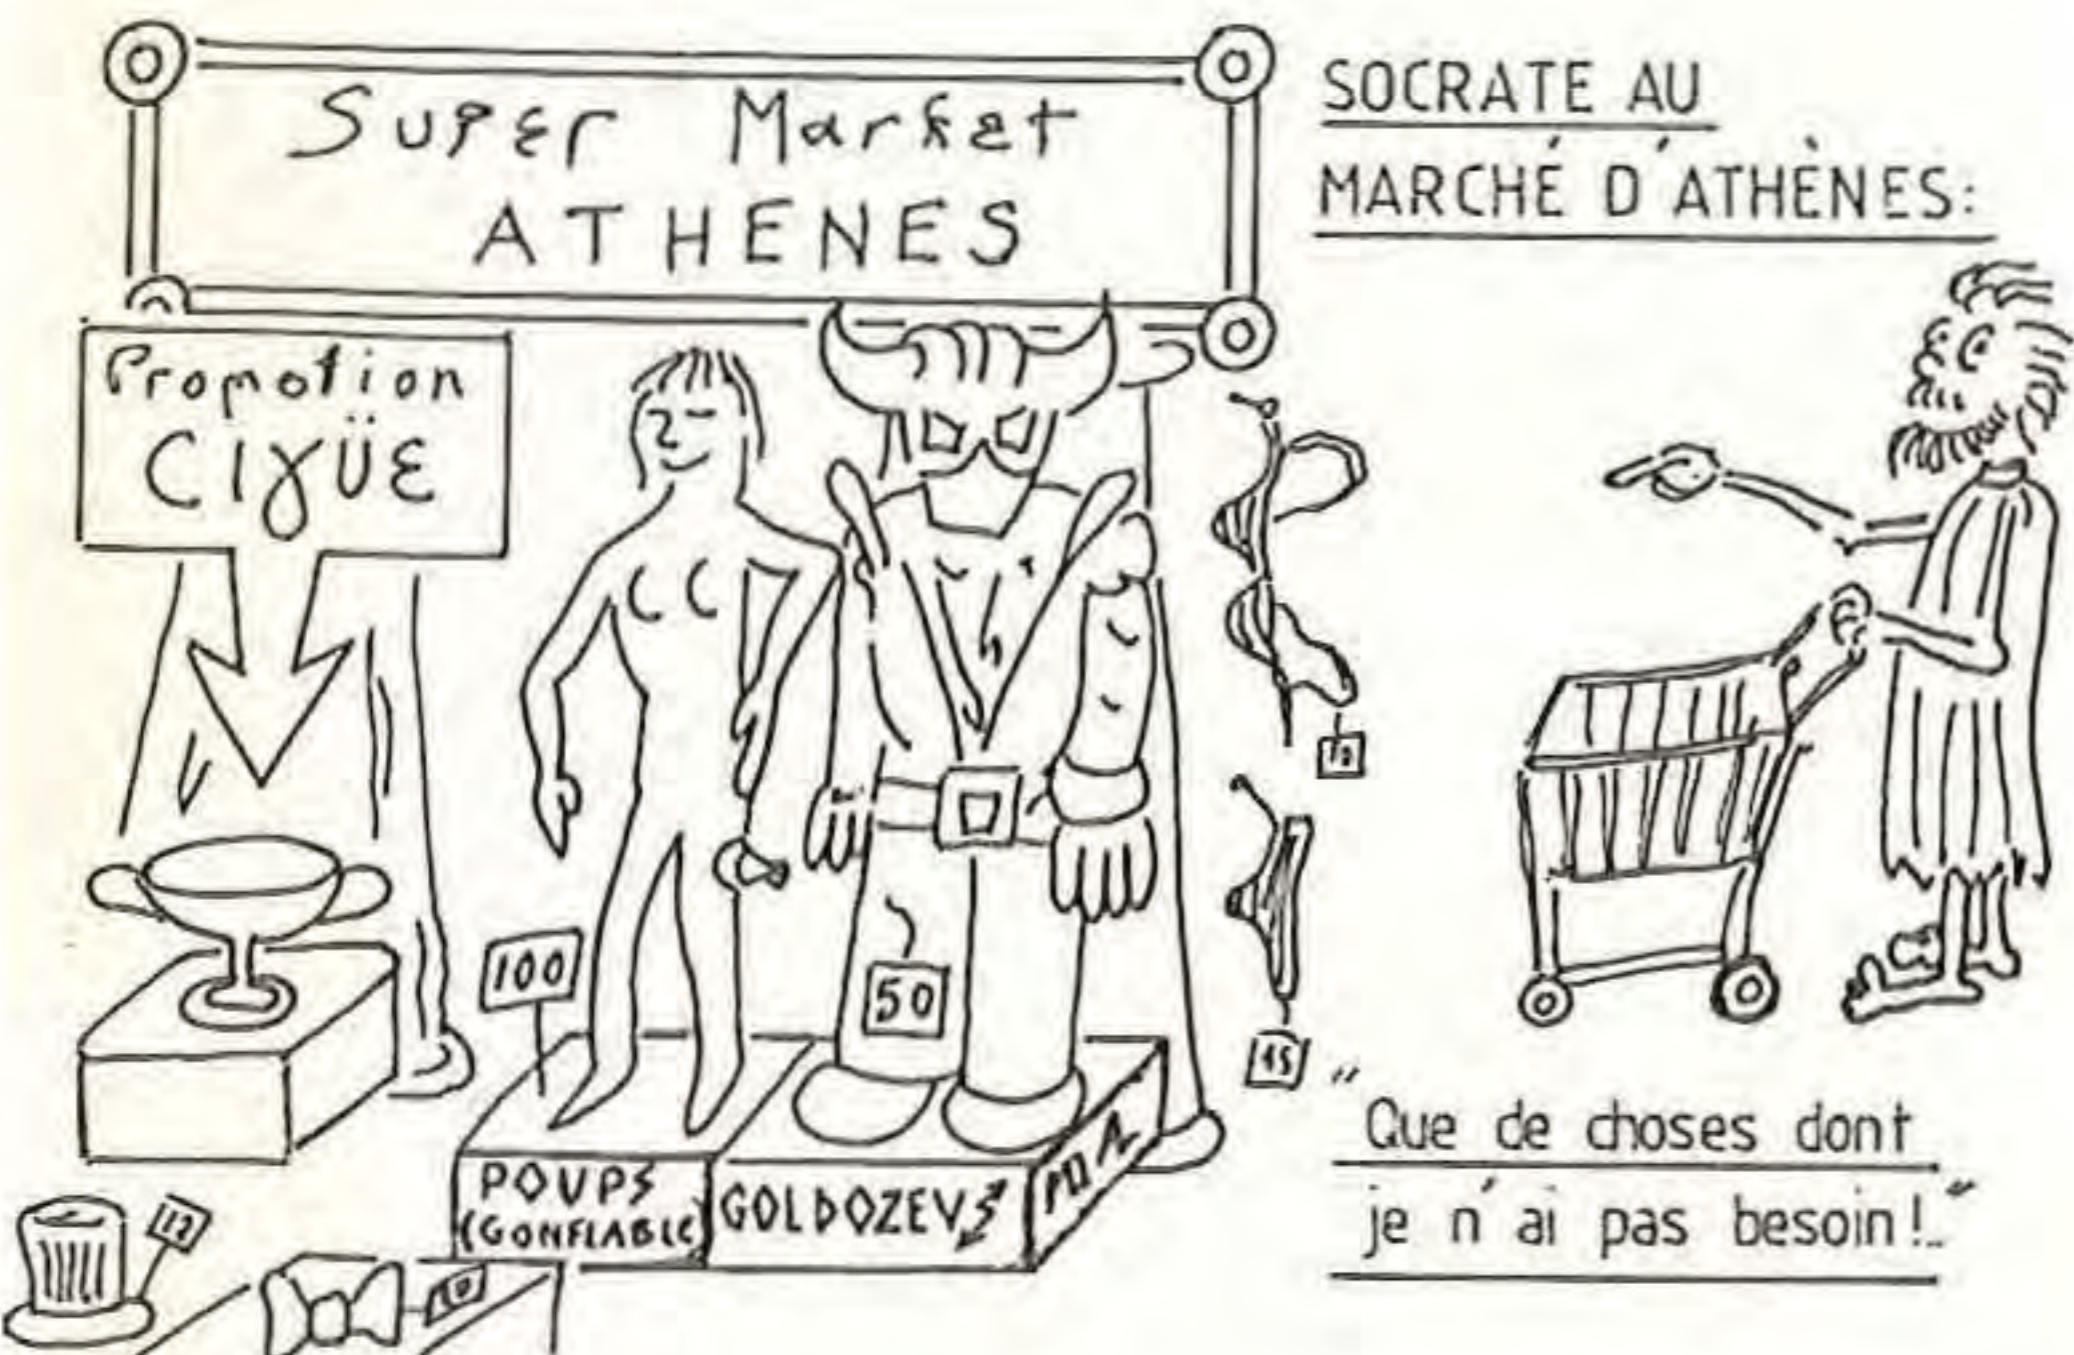 Super Market
ATHENES
SOCRATE AU
MARCHÉ D'ATHÈNES:
Promotion
CIγÜE
100
50
10
15
POUPS
(GONFLABLE)
GOLDOZEUS
12
10
"Que de choses dont
je n'ai pas besoin!.."